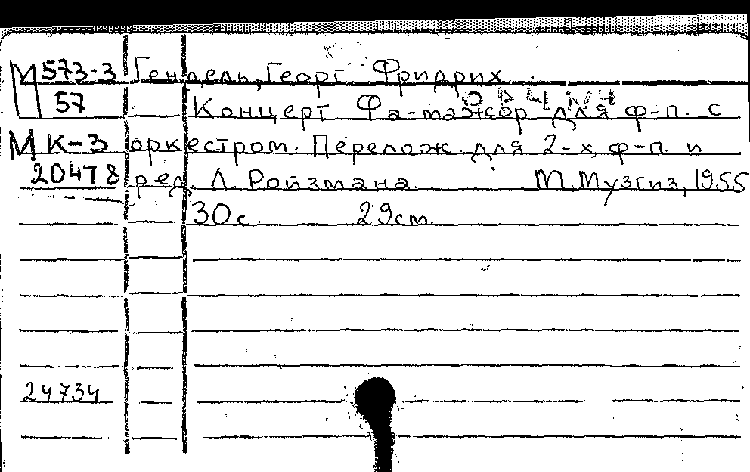 М 573-3 Гендель, Георг Фридрих
57 Концерт Фа-мажор для ф-п. с
М К-3 оркестром. Перелож. для 2-х ф-п. и
20478 ред. Л. Ройзмана М. Музгиз, 1955
30с. 29см.
24734